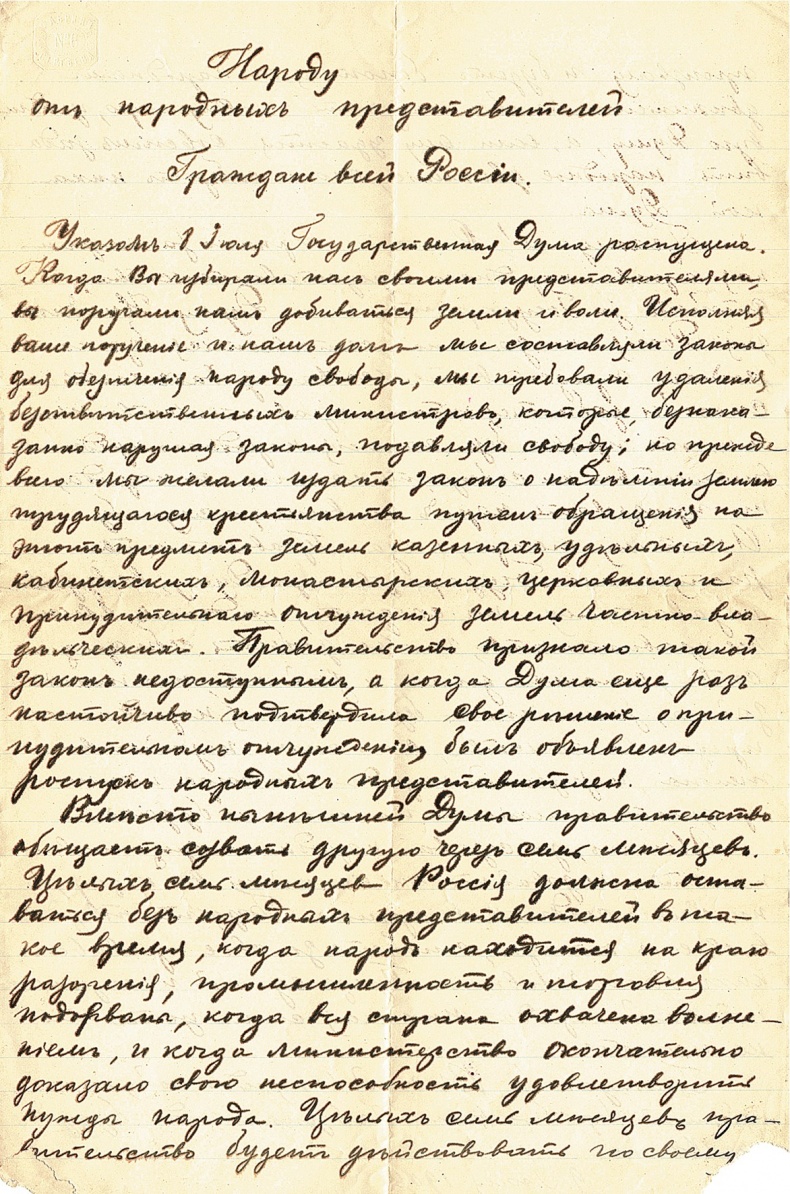 Народу
отъ народныхъ представителей
Граждане всей Россіи.
Указомъ 8 Іюля Государственная Дума распущена.
Когда Вы избирали насъ своими представителями,
вы поручали намъ добиваться земли и воли. Исполняя
ваше порученіе и нашъ долгъ мы составляли законы
для обезпеченія народу свободы, мы требовали удаленія
безотвѣтственныхъ министровъ, которые, безнака-
занно нарушая законы, подавляли свободу; но прежде
всего мы желали издать законъ о надѣленіи землею
трудящагося крестьянства путемъ обращенія на
этотъ предметъ земель казенныхъ, удѣльныхъ,
кабинетскихъ, монастырскихъ, церковныхъ и
принудительнаго отчужденія земель частно-вла-
дѣльческихъ. Правительство признало такой
законъ недоступнымъ, а когда Дума еще разъ
настойчиво подтвердила свое рѣшеніе о при-
нудительномъ отчужденіи, былъ объявленъ
роспускъ народныхъ представителей.
Вмѣсто нынѣшней Думы правительство
обѣщаетъ созвать другую черезъ семь мѣсяцевъ.
Цѣлыхъ семь мѣсяцев Россія должна оста-
ваться безъ народныхъ представителей въ та-
кое время, когда народъ находится на краю
разоренія, промышленность и торговля
подорваны, когда вся страна охвачена волне-
ніемъ, и когда министерство окончательно
доказало свою неспособность удовлетворить
нужды народа. Цѣлыхъ семь мѣсяцевъ пра-
вительство будетъ дѣйствовать по своему